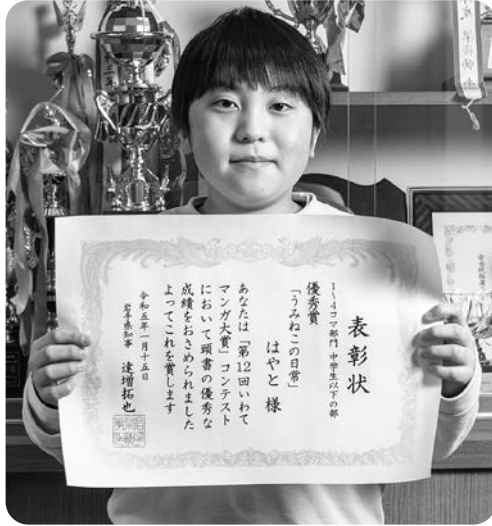 表彰状
1~4コマ部門 中学生以下の部
優秀賞
「うみねこの日常」
はやと 様
あなたは「第12回いわて
マンガ大賞」コンテスト
において頭書の優秀な
成績をおさめられました
よってこれを賞します
令和五年一月十五日
岩手県知事 達増拓也